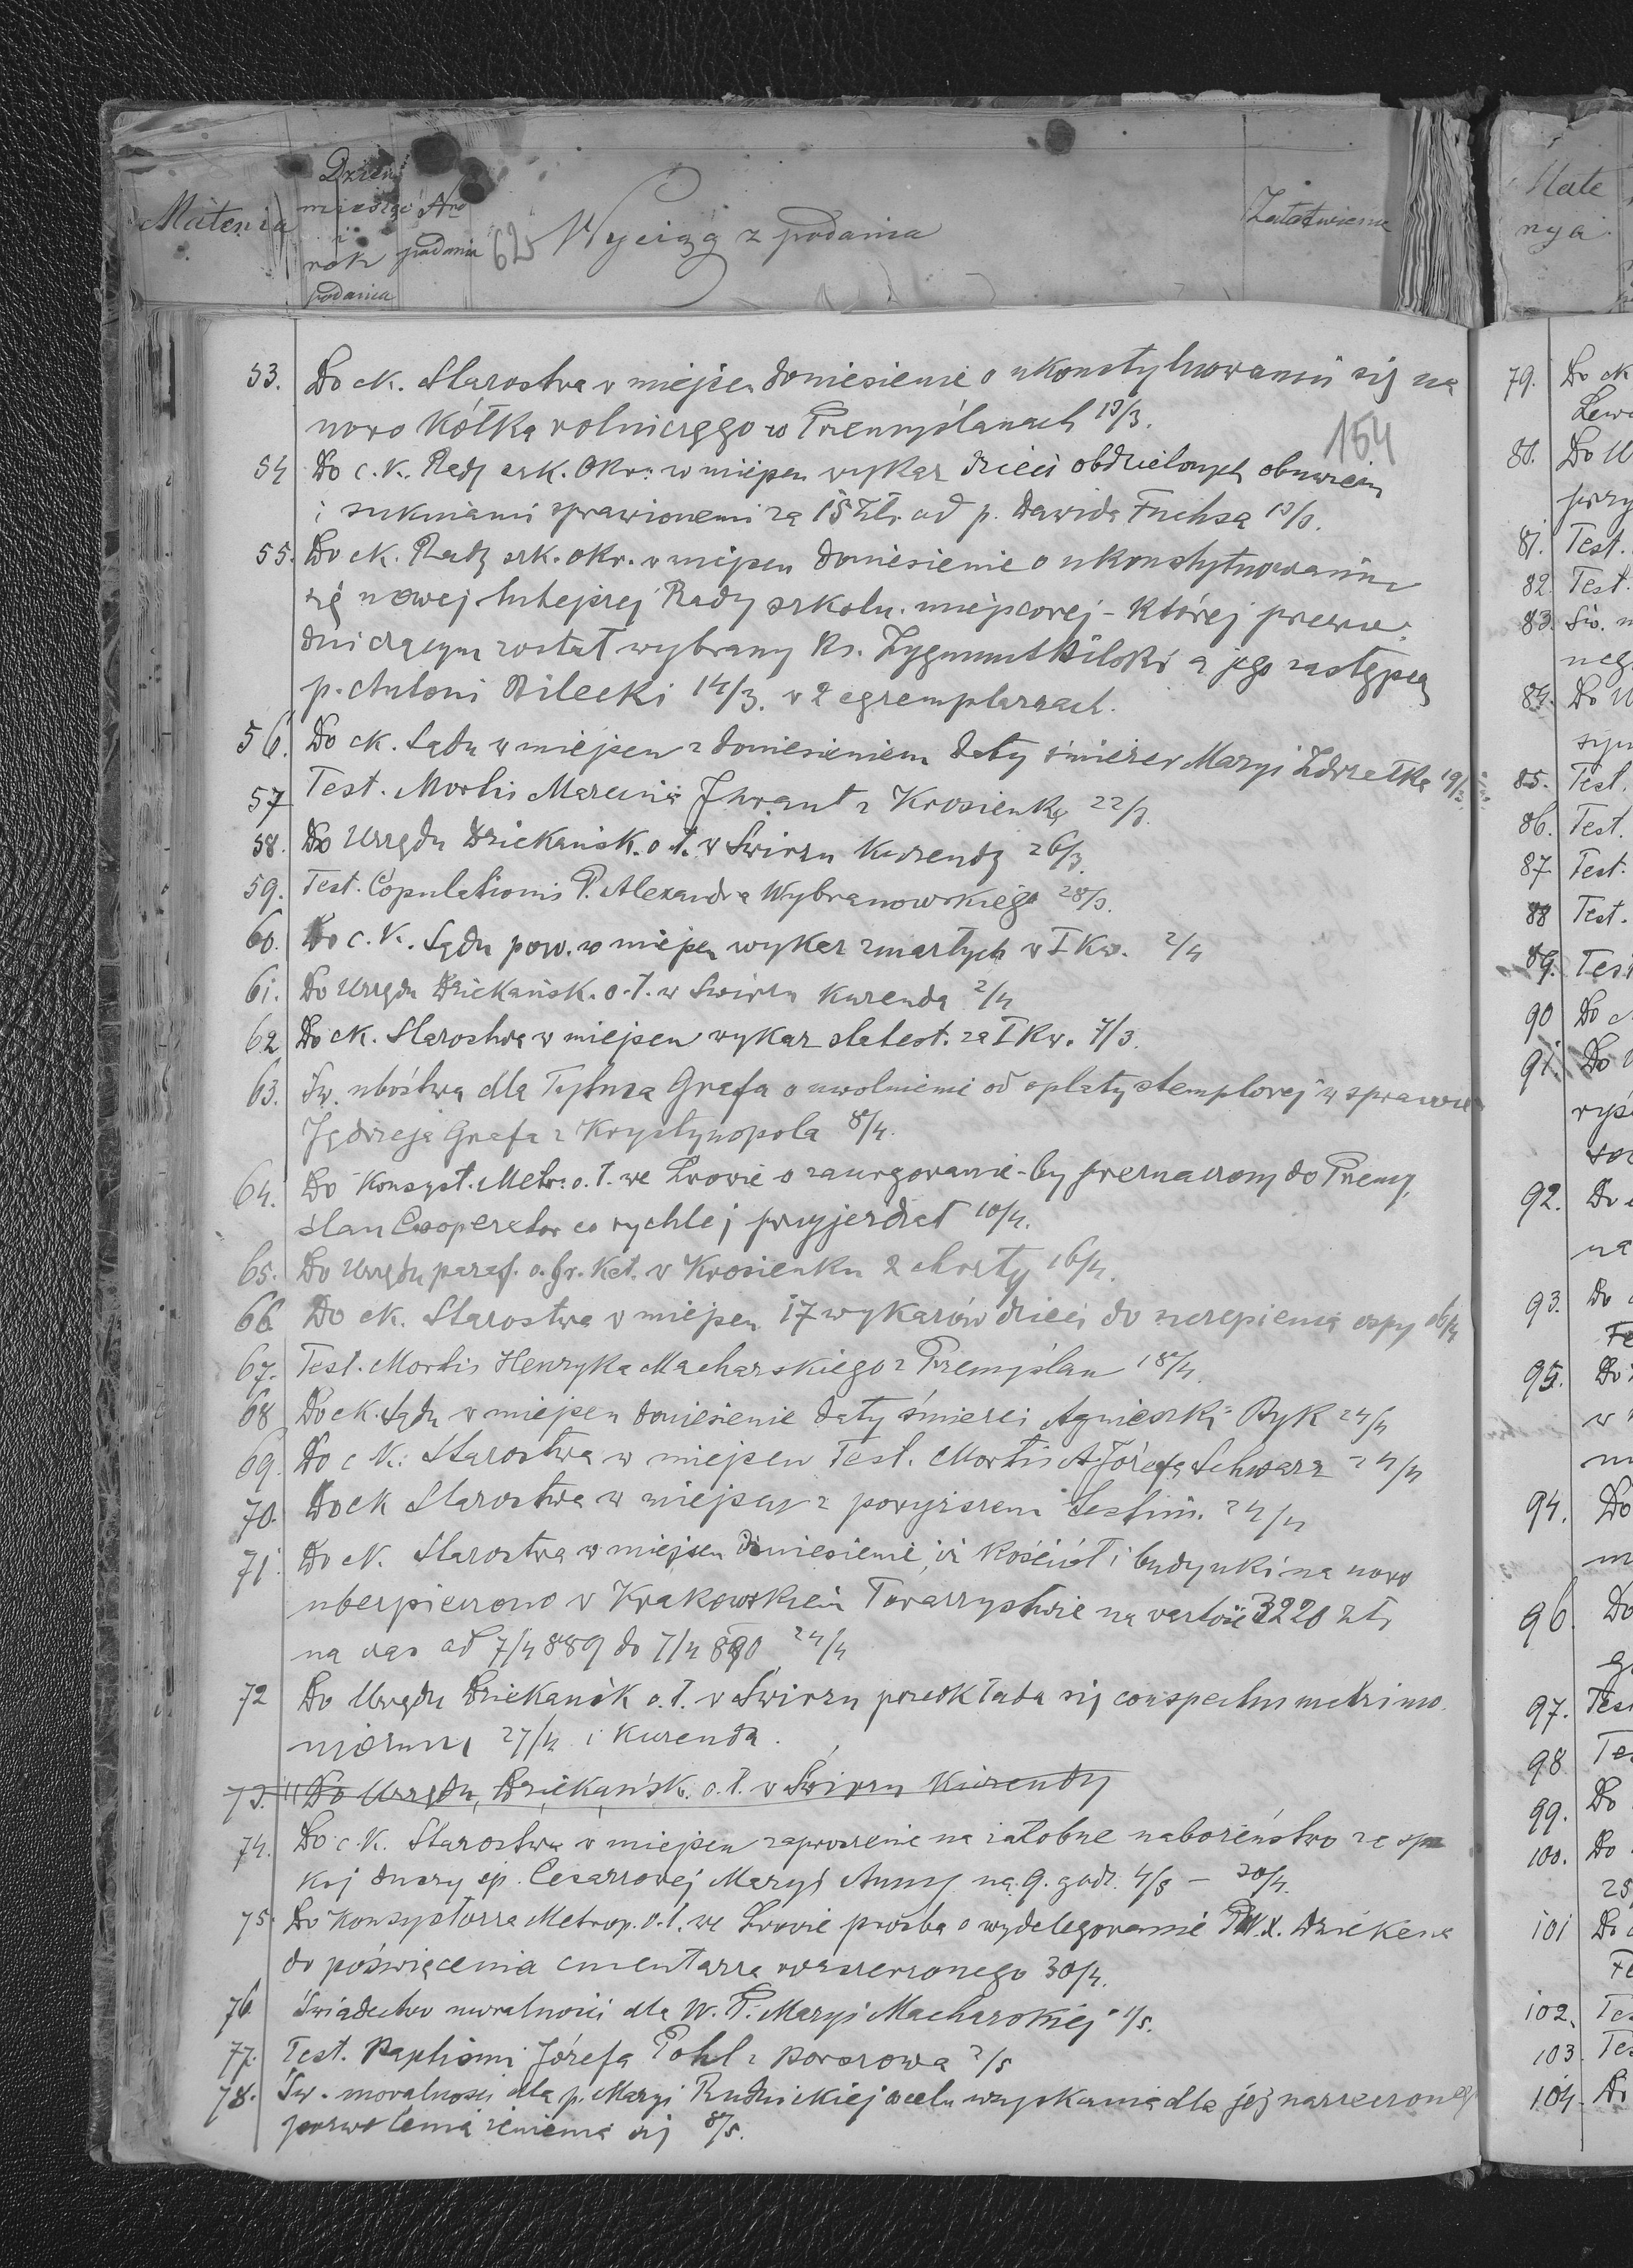 Materia
Dzień
miesiąc
i
rok
podania
Nro
podania
62
Wyciąg z podania
Załatwienie
154
53. Do ck. Starostwa w miejscu doniesienie o ukonstytuowaniu się na
nowo Kółka rolniczego w Przemyślanach 13/3.
54 Do c. k. Rady szk. Okr. w miejscu wykaz dzieci obdzielonych obuwiem
i sukniami sprawionemi za 15 złr. od p. Dawida Fuchsa 13/3.
55. Do ck. Rady szk. okr. w miejscu doniesienie o ukonstytuowaniu
się nowej tutejszej Rady szkoln. miejscowej - której przewo-
dniczącym został wybrany ks. Zygmunt Bilski a jego zastępcą
p. Antoni Bilecki 14/3. w 2 egzemplarzach.
56. Do ck. Sądu w miejscu z doniesieniem daty śmierci Maryi Zdrzałka 19/3.
57 Test. Mortis Marcina z Krosienka 22/3.
58. Do Urzędu Dziekańsk. o. ł. w Świrzu Kurendę 26/3.
59. Test. Copulationis P. Alexandra Wybranowskiego 28/3.
60. Do c. k. Sądu pow. w miejscu wykaz zmarłych w I Kw. 2/4
61. Do Urzędu Dziekańsk. o. ł. w Świrzu Kurenda 2/4
62 Do ck. Starostwa w miejscu wykaz statyst. za I Kw. 7/3.
63. Św. ubóstwa dla Tytusa Grafa o uwolnienie od opłaty stemplowej w sprawie
Jędrzeja Grafa z Krystynopola 8/4.
64. Do Konsyst. Metr. o. ł. we Lwowie o zaurgowanie - by przeznaczony do Przemy-
ślan Cooperator co rychlej przyjeżdżał 10/4.
65. Do Urzędu paraf. o. gr. kat. w Krosienku 2 chrzty 16/4.
66. Do ck. Starostwa w miejscu 17 wykazów dzieci do szczepienia ospy 16/4
67. Test. Mortis Henryka Macharskiego z Przemyślan 18/4.
68 Do ck. Sądu w miejscu doniesienie daty śmierci Agnieszki Byk 24/4
69. Do c. k. Starostwa w miejscu Test. Mortis Józefa Schwarz 24/4
70. Do ck Starostwa w miejscu z powyższem testim. 24/4
71. Do ck. Starostwa w miejscu doniesienie iż kościół i budynki na nowo
ubezpieczono w Krakowskiem Towarzystwie na wartość 3220 złr
na czas od 7/4 889 do 7/4 890 24/4
72 Do Urzędu Dziekańsk o. ł. w Świrzu przedkłada się conspectus matrimo-
niorum 27/4 i Kurenda.
73. Do Urzędu Dziekańsk. o. ł. w Świrzu Kurendy
74. Do c. k. Starostwa w miejscu zaproszenie na żałobne nabożeństwo za spo
kój duszy śp. Cesarzowej Maryi Anny na 9. godz. 4/5 - 30/4.
75. Do Konsystorza Metrop. o. ł. we Lwowie prośba o wydelegowanie Dziekana
do poświęcenia cmentarza rozszerzonego 30/4.
76 Świadectwo moralności dla W. P. Maryi Macharskiej 1/5.
77. Test. Baptismi Józefa Pohl z 2/5
78. Św. moralności dla p. Maryi Rudnickiej w celu uzyskania dla jej narzeczonego
pozwolenia żenienia się 8/5.
Mate
rya
79. Do ck
80. Do U
przy
81. Test.
82. Test.
83. Św. m
neg
84. Do U
syn
85. Test.
86. Test.
87 Test.
88 Test.
89. Test
90 Do c
91. Do U
92. Do c
na
93. Do
95. Do
w
94. Do
m
96. Do
97. Test
98 Te
99. Do
100. Do
25
101 Do c
102. Te
103. Te
104. Do